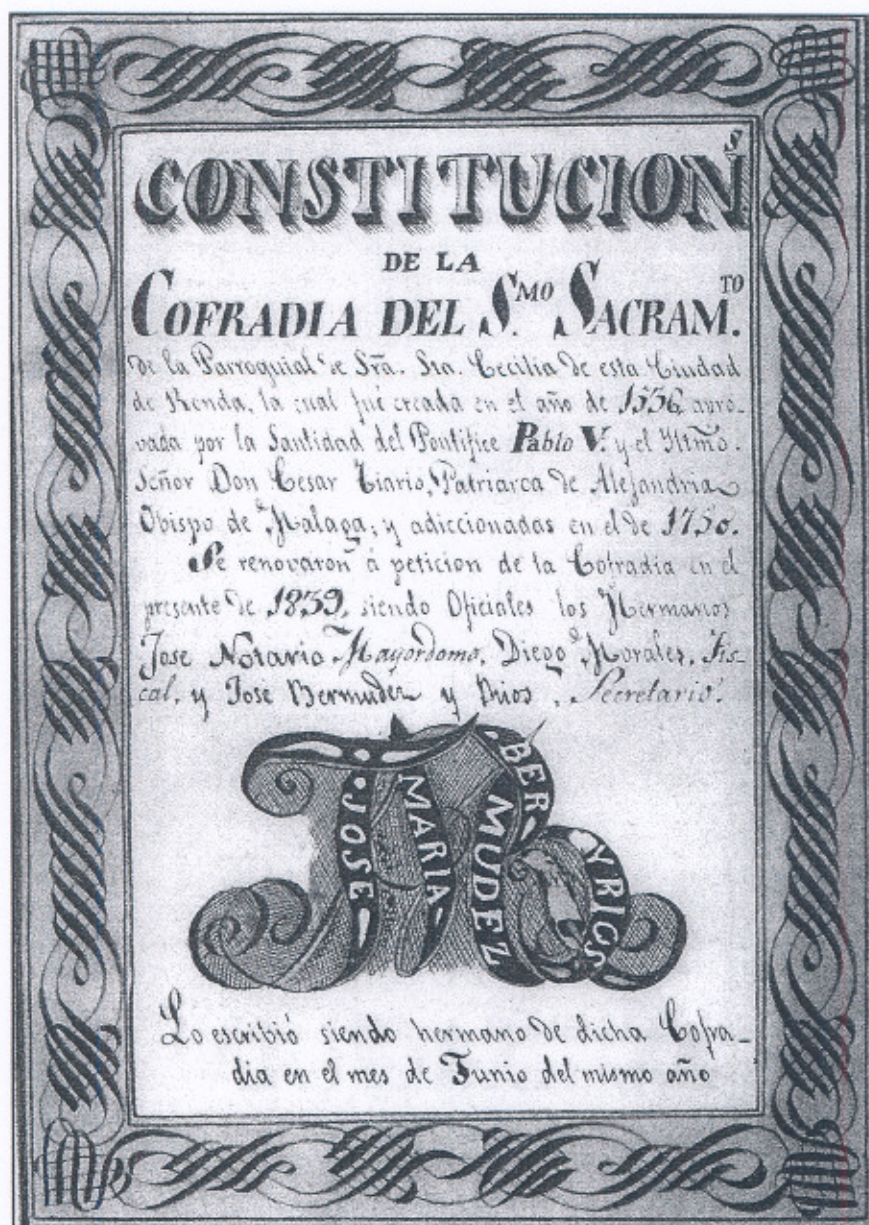 CONSTITUCIONˢ
DE LA
COFRADIA DEL S.ᴹᴼ SACRAM.ᵀᴼ
de la Parroquial de Srã. Sta. Cecilia de esta Ciudad
de Ronda, la cual fué creada en el año de 1556, apro-
vada por la Santidad del Pontifice Pablo V. y el Iltmo.
Señor Don Cesar Riario, Patriarca de Alejandria
Obispo de Malaga; y adiccionadas en el de 1750.
Se renovaron á peticion de la Cofradia en el
presente de 1839, siendo Oficiales los Hermanos
Jose Notario Mayordomo, Diego Morales, Fis-
cal, y José Bermudez y Rios, Secretario.
JOSE MARIA BERMUDEZ Y RIOS
Lo escribió siendo hermano de dicha Cofra-
dia en el mes de Junio del mismo año